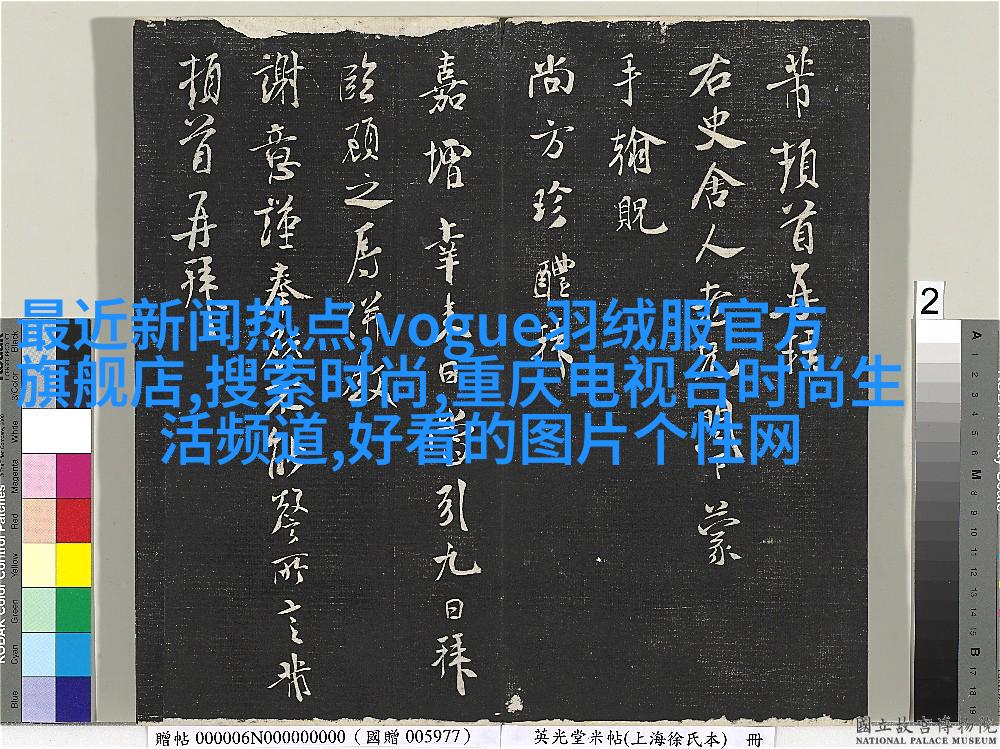 芾頓首再拜
右史舍人老兄閣下蒙
手翰貺
尚方珍醴拜
嘉增幸來日
引九日拜
臨顧之辱
謝意謹奉
所言芾
頓首再拜
最近新闻热点,vogue羽绒服官方
旗舰店,搜索时尚,重庆电视台时尚生
活频道,好看的图片个性网
2
Black
3/Color
White
Magenta
Red
Yellow
Green
Cyan
Blue
KODAK Color Control Patches
A
1
2
3
4
5
6
M
8
9
10
11
12
13
14
15
B
17
18
19
贈帖 000006N000000000 (國贈 005977)
英光堂米帖(上海徐氏本) 冊
國立故宮博物院
NATIONAL PALACE MUSEUM